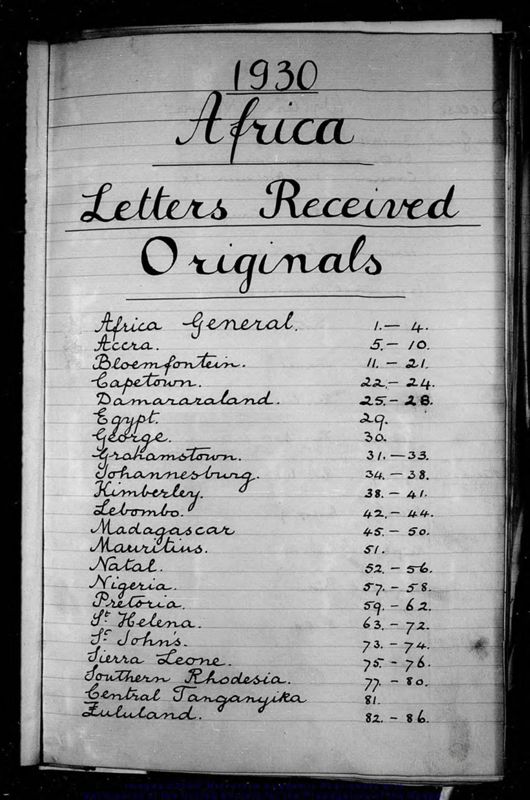 1930
Africa
Letters Received
Originals
Africa General. 1.- 4.
Accra. 5.- 10.
Bloemfontein. 11.- 21.
Capetown. 22.- 24.
Damararaland. 25.- 28.
Egypt. 29.
George. 30.
Grahamstown. 31.-33.
Johannesburg. 34.- 38.
Kimberley. 38.- 41.
Lebombo. 42.- 44.
Madagascar 45.- 50.
Mauritius. 51.
Natal. 52.- 56.
Nigeria. 57.- 58.
Pretoria. 59.- 62.
St Helena. 63.- 72.
St John's. 73.- 74.
Sierra Leone. 75.- 76.
Southern Rhodesia. 77.- 80.
Central Tanganyika 81.
Zululand. 82.- 86.